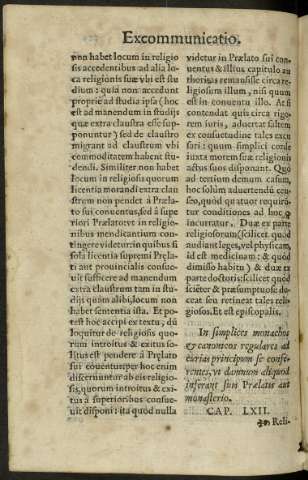 Excommunicatio.
non habet locum in religio
sis accedentibus ad alia lo
ca religionis suæ vbi est stu
dium: quia non accedunt
proprie ad studia ipsa (hoc
est ad manendum in studijs
quæ extra claustra esse sup-
ponuntur) sed de claustro
migrant ad claustrum vbi
commoditatem habent stu-
dendi. Similiter non habet
locum in religiosis quorum
licentia morandi extra clau
strum non pendet à Præla-
to sui conuentus, sed à supe
riori Prælato: vt in religio-
nibus mendicantium con-
tingere videtur: in quibus si
sola licentia supremi Præ
ti aut prouincialis consue-
uit sufficere ad manendum
extra claustrum tam in stu-
dijs quàm alibi, locum non
habet sententia ista. Et po-
test hoc accipi ex textu, dũ
loquitur de religiosis quo-
rum introitus & exitus so-
litus est pendere à Prelato
sui conuentus: per hoc enim
discernuntur ab eis religio-
sis, quorum introitus & exi-
tus à superioribus consue-
uit disponi: ita quòd nulla
videtur in Prælato sui con-
uentus & illius capitulo au
thoritas remansisse circa re-
ligiosum illum, nisi quum
est in conuentu illo. At si
contendat quis circa rigo-
rem iuris, aduertat saltem
ex consuetudine tales excu
sari: quum simplici corde
iuxta morem suæ religionis
actus suos disponant. Quò
ad tertium demum casum,
hoc solùm aduertendũ cen-
seo, quòd quatuor requirũ-
tur conditiones ad hoc, q̃
incurratur. Duæ ex parte
religiosorum (scilicet quòd
audiant leges, vel physicam,
id est medicinam: & quòd
dimisso habitu) & duæ ex
parte doctoris: scilicet quòd
scièter & præsumptuose do-
ceat seu retineat tales reli-
giosos. Et est episcopalis.
In simplices monachos
& canonicos regulares ad
curias principum se confe-
rentes, vt damnum aliquod
inferant suis Prælatis aut
monasterio.
CAP. LXII.
Reli-